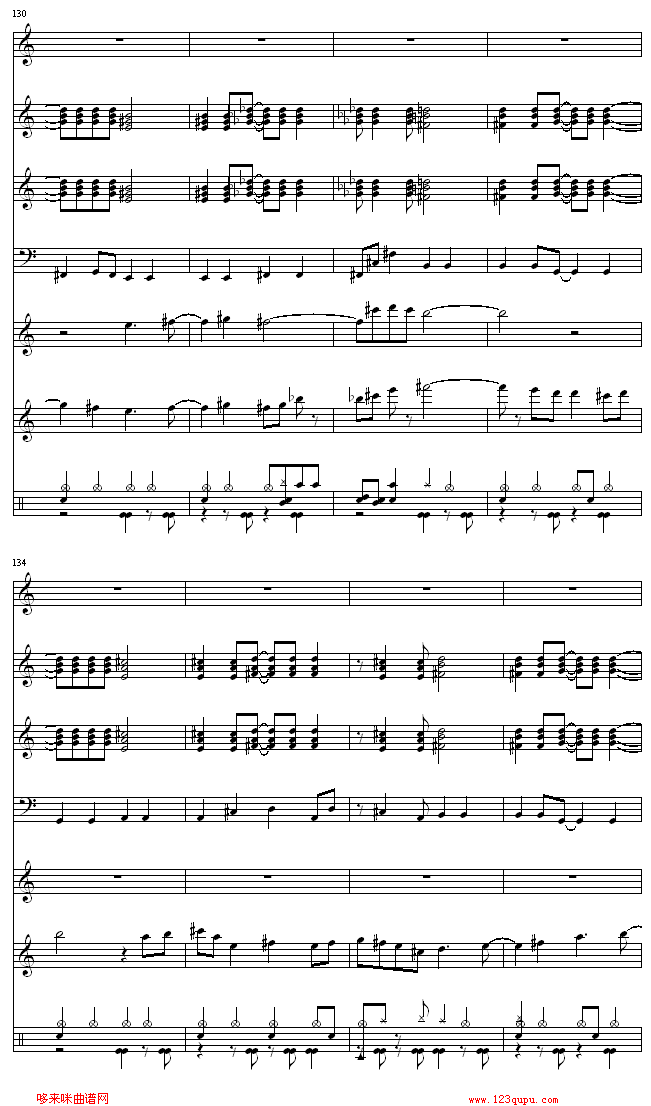 130
134
哆来咪曲谱网
www.123qupu.com